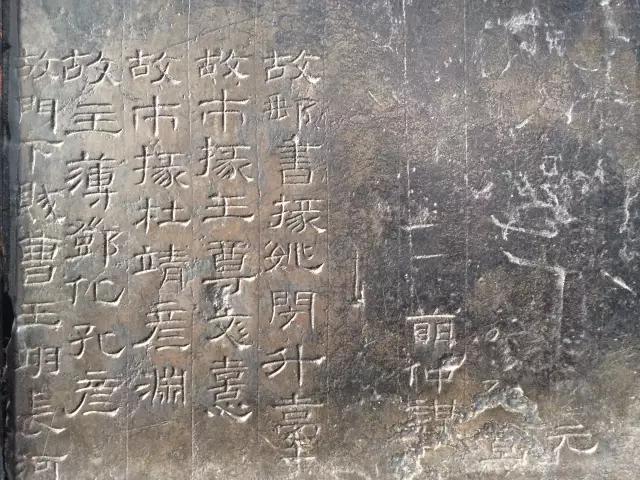 元
萌仲謀
故郵書掾姚閔升臺
故市掾王尊文憙
故市掾杜靖彥淵
故主薄鄧化孔彥
故門下賊曹王翊長河